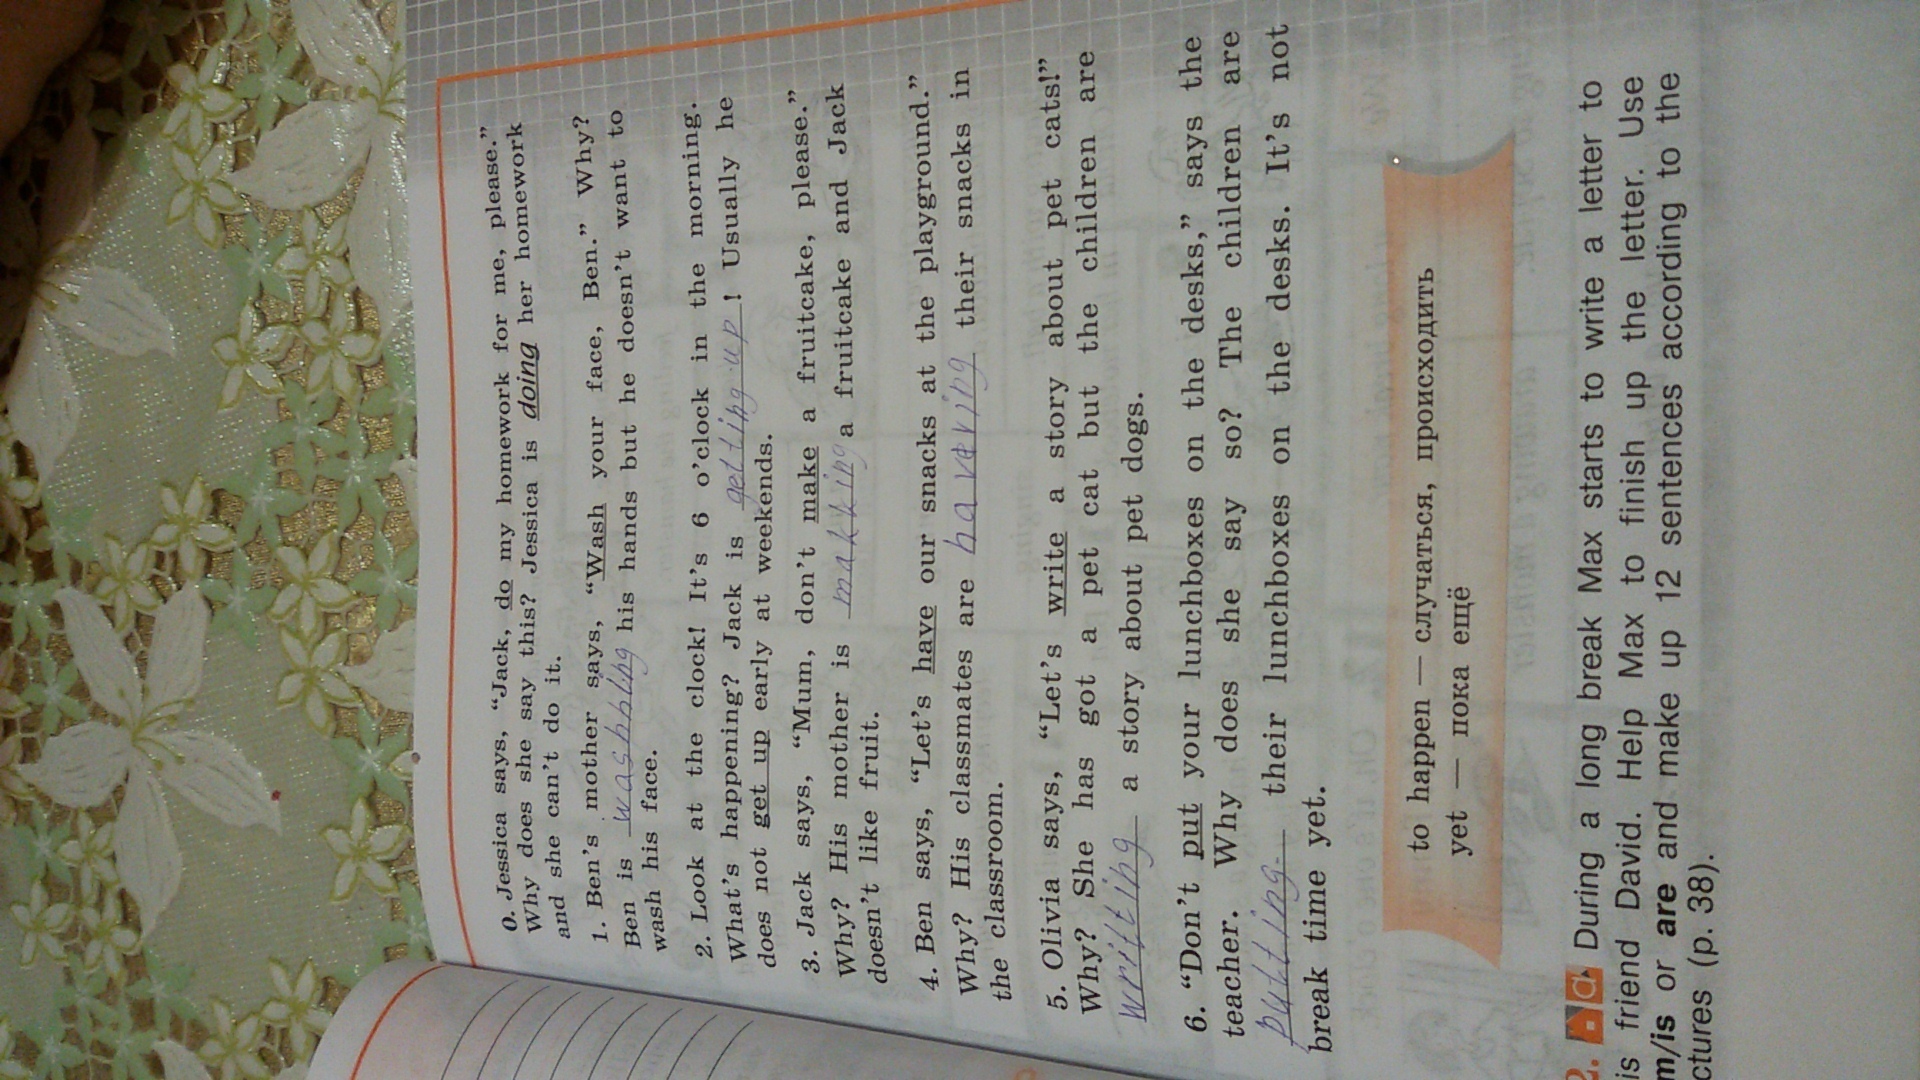 0. Jessica says, “Jack, do my homework for me, please.”
Why does she say this? Jessica is doing her homework
and she can’t do it.
1. Ben’s mother says, “Wash your face, Ben.” Why?
Ben is washhing his hands but he doesn’t want to
wash his face.
2. Look at the clock! It’s 6 o’clock in the morning.
What’s happening? Jack is getting up! Usually he
does not get up early at weekends.
3. Jack says, “Mum, don’t make a fruitcake, please.”
Why? His mother is makking a fruitcake and Jack
doesn’t like fruit.
4. Ben says, “Let’s have our snacks at the playground.”
Why? His classmates are havering their snacks in
the classroom.
5. Olivia says, “Let’s write a story about pet cats!”
Why? She has got a pet cat but the children are
writting a story about pet dogs.
6. “Don’t put your lunchboxes on the desks,” says the
teacher. Why does she say so? The children are
putting their lunchboxes on the desks. It’s not
break time yet.
to happen — случаться, происходить
yet — пока ещё
2. During a long break Max starts to write a letter to
is friend David. Help Max to finish up the letter. Use
m/is or are and make up 12 sentences according to the
ctures (p. 38).